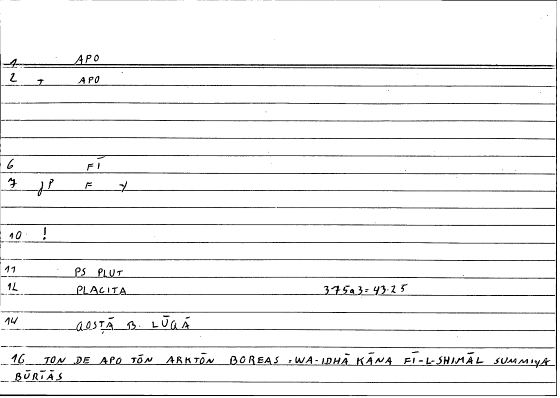 1 APO
2 T APO
6 FĪ
7 JP F Y
10 !
11 PS PLUT
12 PLACITA 375a3=43.25
14 QOSṬĀ B. LŪQĀ
16 TON DE APO TŌN ARKTŌN BOREAS = WA-IDHĀ KĀNA FĪ-L-SHIMĀL SUMMIYA
BŪRĪĀS